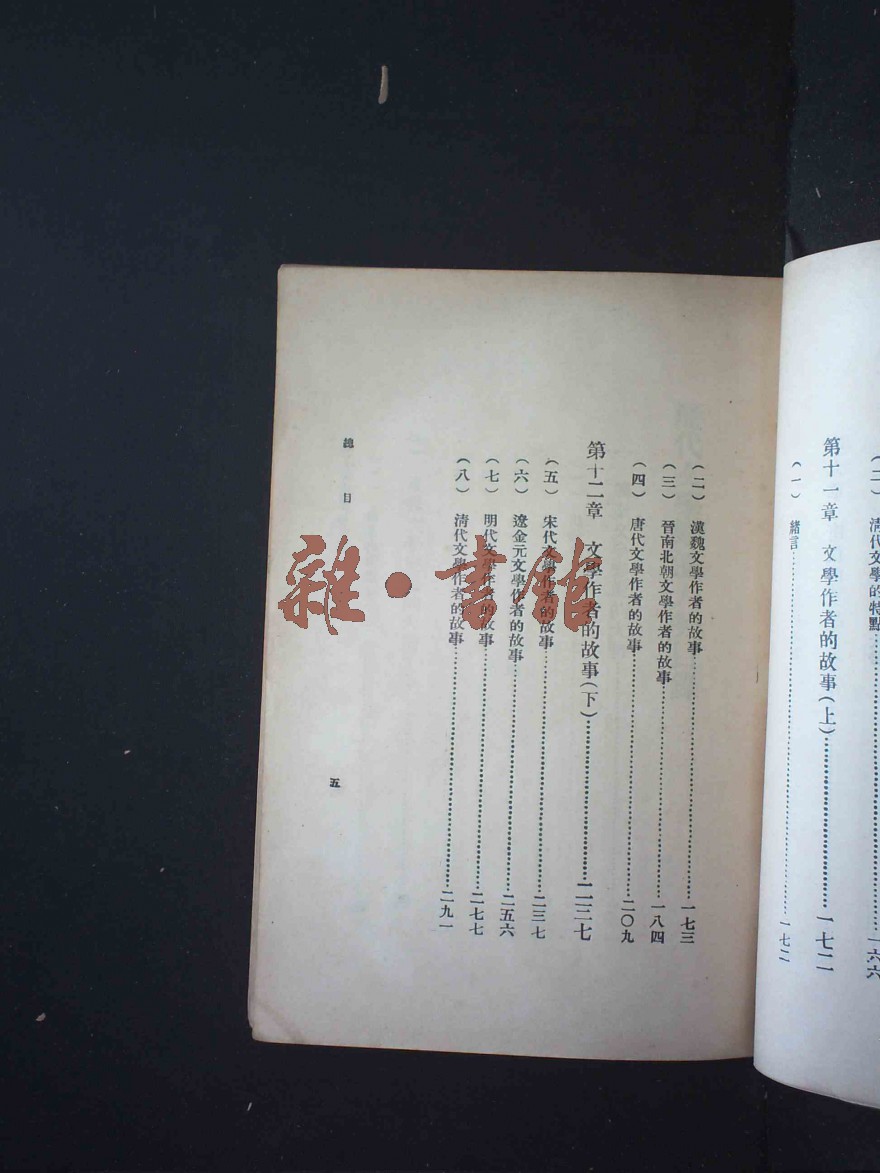 （二）清代文學的特點……一六六
第十一章　文學作者的故事（上）……一七二
（一）緒言……一七二
（二）漢魏文學作者的故事……一七三
（三）晉南北朝文學作者的故事……一八四
（四）唐代文學作者的故事……二〇九
第十二章　文學作者的故事（下）……二三七
（五）宋代文學作者的故事……二三七
（六）遼金元文學作者的故事……二五六
（七）明代文學作者的故事……二七七
（八）清代文學作者的故事……二九一
總目
五
雜·書館